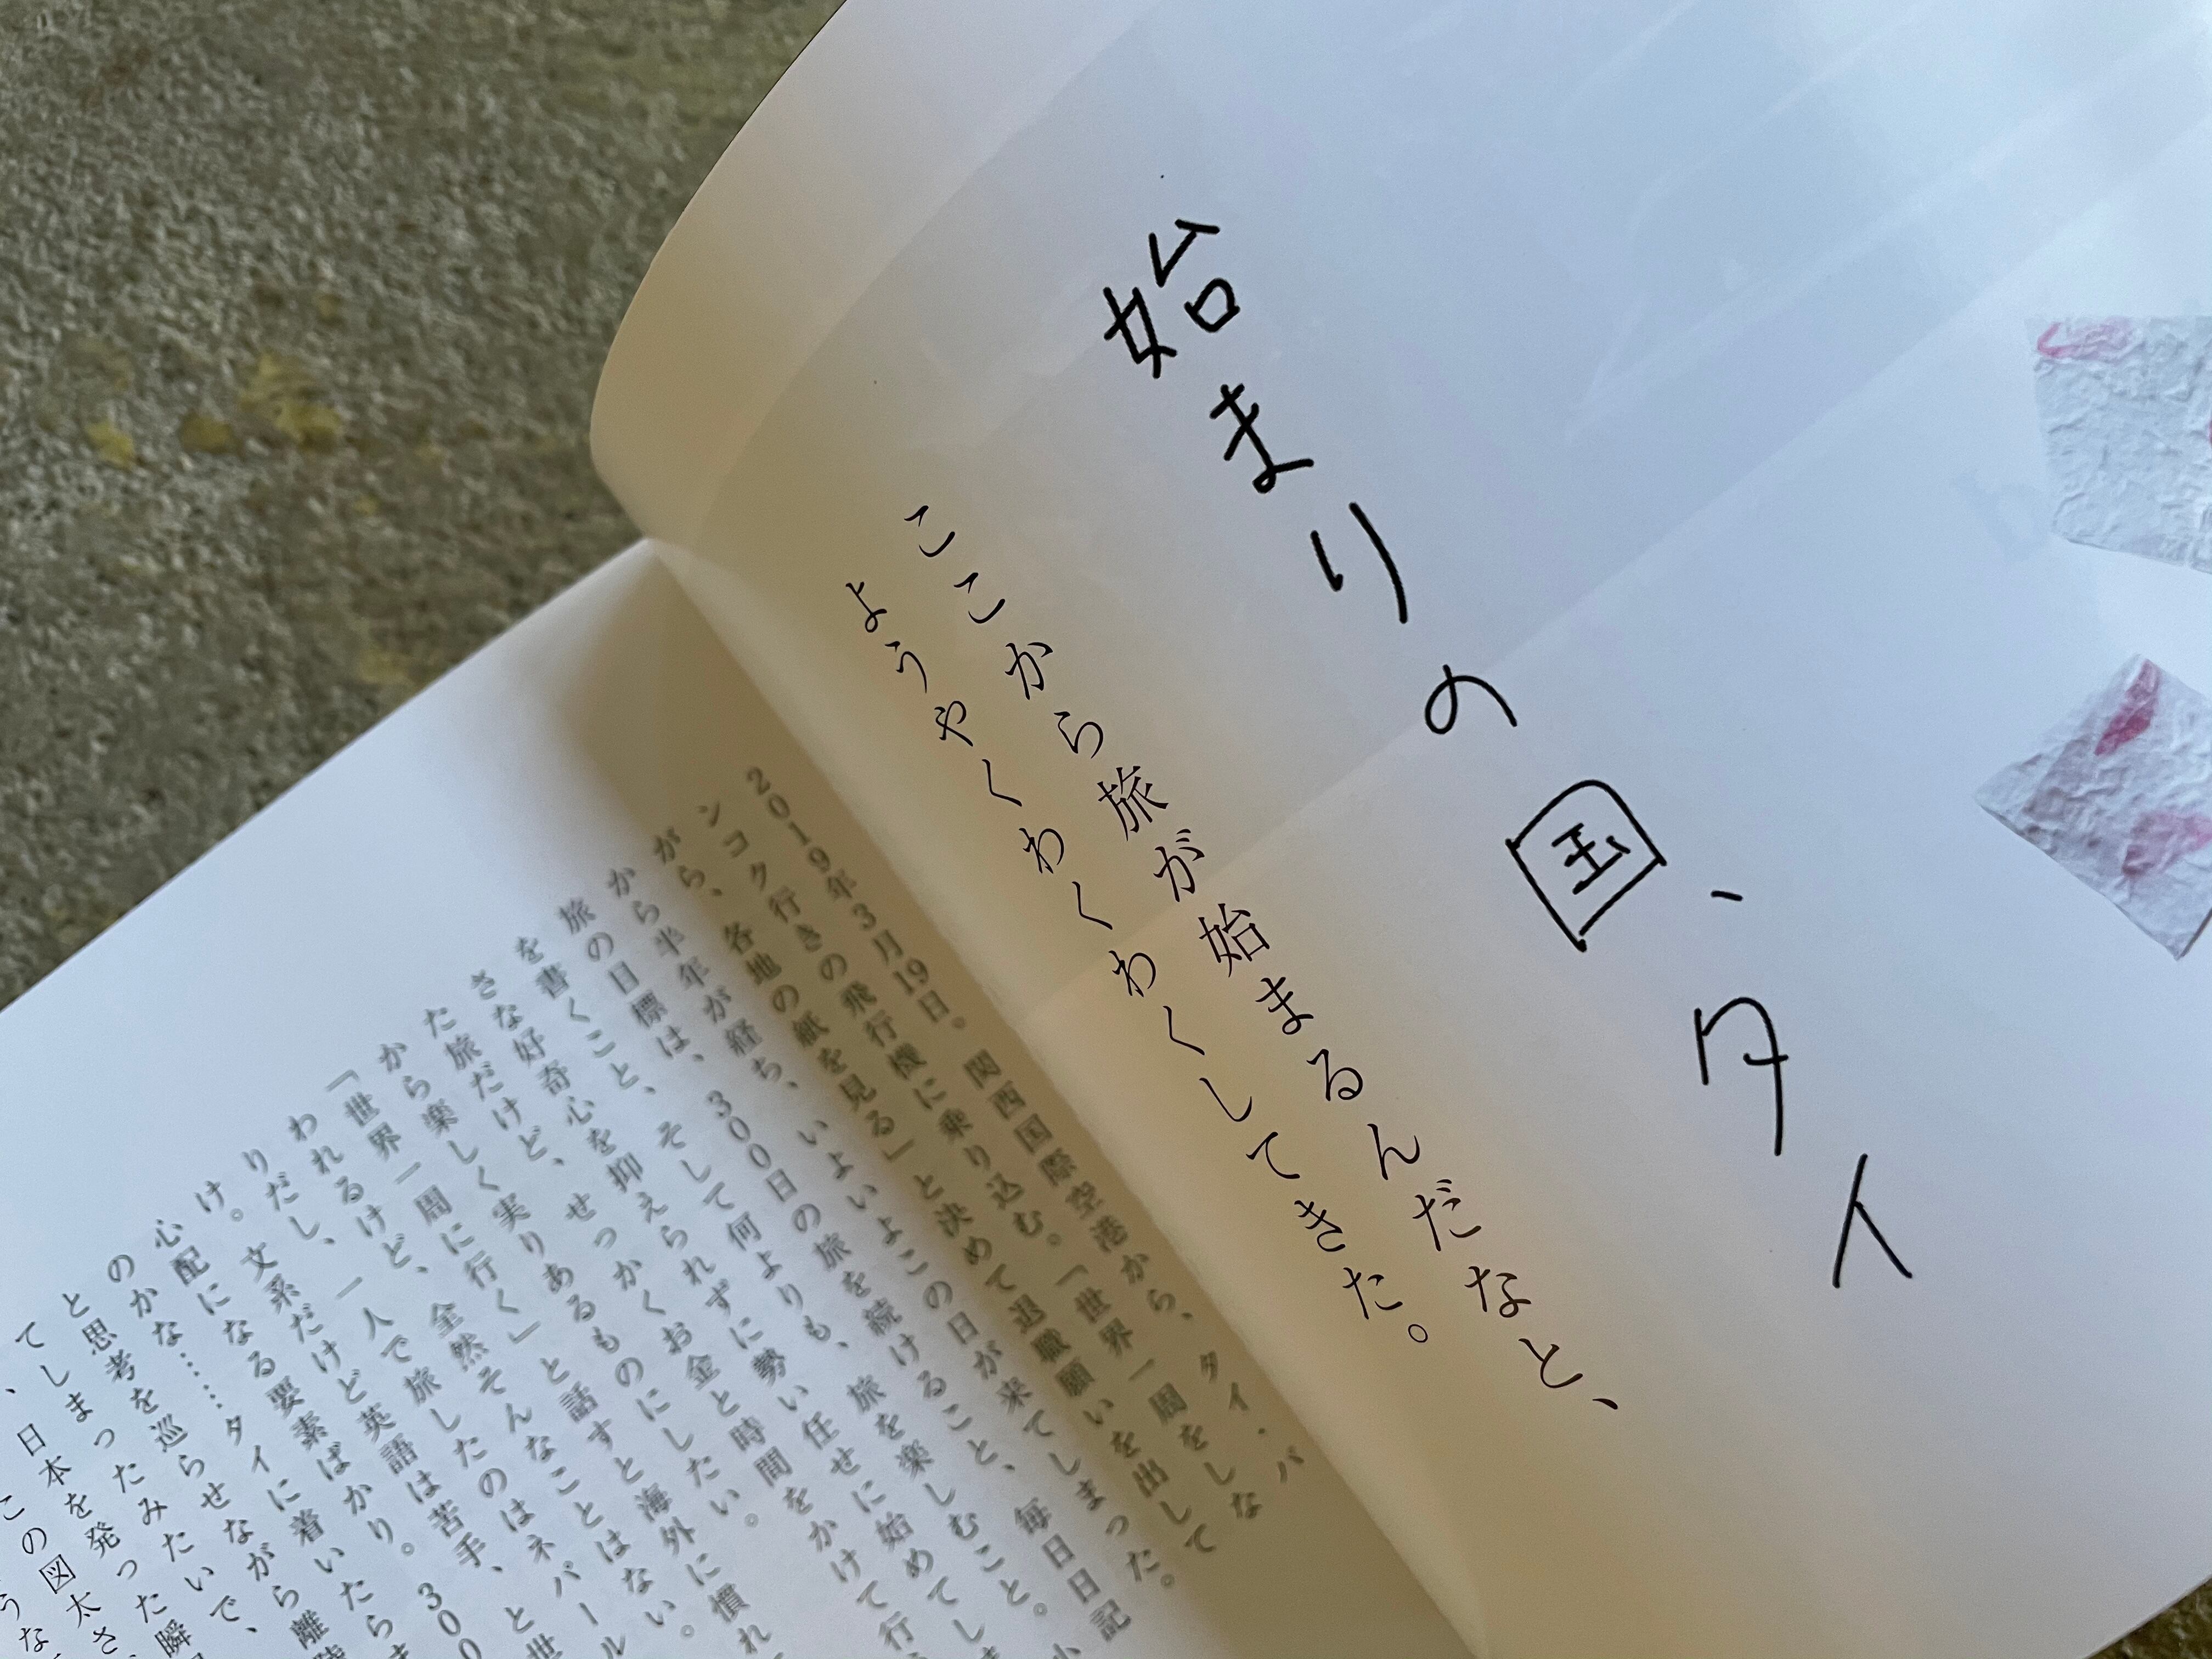 始まりの国、タイ
ここから旅が始まるんだなと、
ようやくわくわくしてきた。
2019年3月19日。関西国際空港から、タイ・バ
ンコク行きの飛行機に乗り込む。「世界一周をしな
がら、各地の紙を見る」と決めて退職願いを出して
から半年が経ち、いよいよこの日が来てしまった。
旅の目標は、300日の旅を続けること、毎日日記
を書くこと、そして何よりも、旅を楽しむこと。小
さな好奇心を抑えられずに勢い任せに始めてしま
た旅だけど、せっかくお金と時間をかけて行
から楽しく実りあるものにしたい。
「世界一周に行く」と話すと海外に慣れ
われるけど、全然そんなことはない
りだし、一人で旅したのはネパール
け。文系だけど英語は苦手、と世
心配になる要素ばかり。300
のかな……タイに着いたらま
と思考を巡らせながら離陸
てしまったみたいで、
、日本を発った瞬
この図太さ